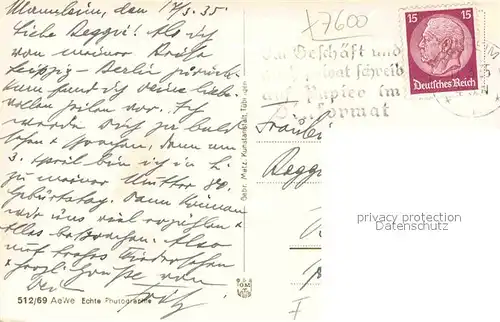 Mannheim, den 17/3.35
Liebe Reggie! Als ich
von meiner Reise
Leipzig - Berlin zurück-
kam fand ich Deine liebe-
vollen Zeilen vor. Ich
werde Dich ja bald
sehen + sprechen, denn am
3. April bin ich in L.
zu meiner Mutter 80.
Geburtstag. Dann können
wir uns viel erzählen +
Alles besprechen. Also
auf frohes Wiedersehen
+ herzl. Grüße von
Fritz
512/69 AeWe Echte Photographie
Gebr. Metz, Kunstanstalt, Tübingen
GM
x7600
Im Geschäft und
privat schreib
auf Papier im
Din format
15 15
Deutsches Reich
Fräulein
privacy protection
Datenschutz
I